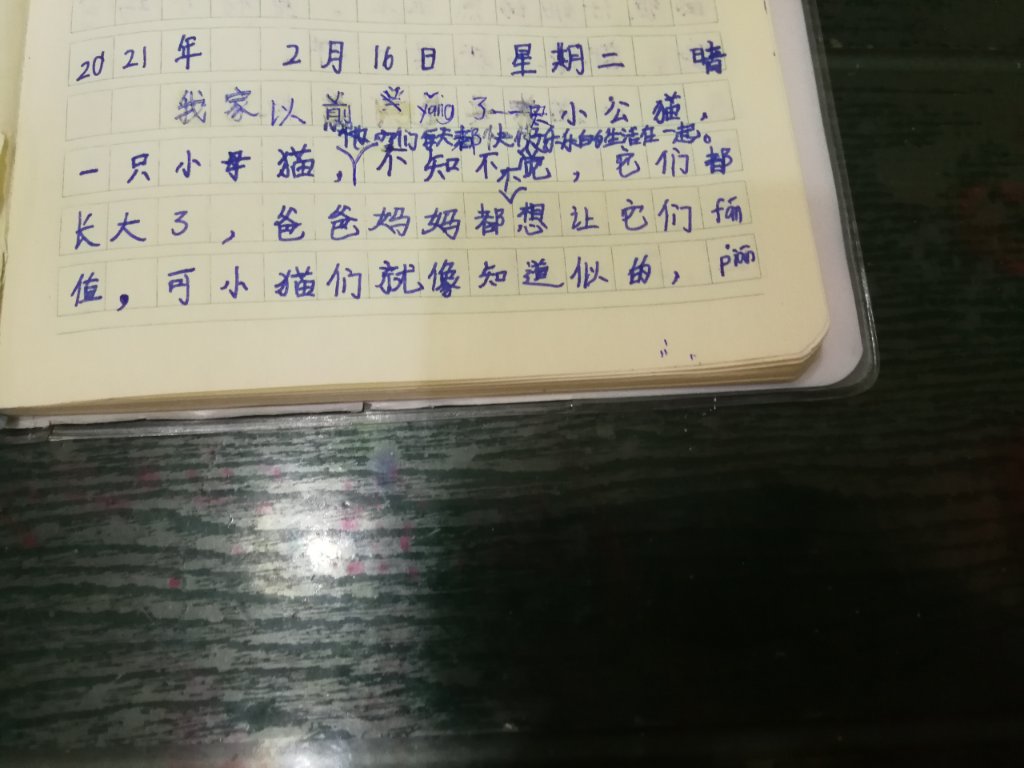 2021年 2月16日 星期二 晴
我家以前 yǎng了一只小公猫，
它们每天都快快乐乐的生活在一起。
一只小母猫，不知不觉，它们都
不
长大了，爸爸妈妈都想让它们fán
值，可小猫们就像知道似的，piān